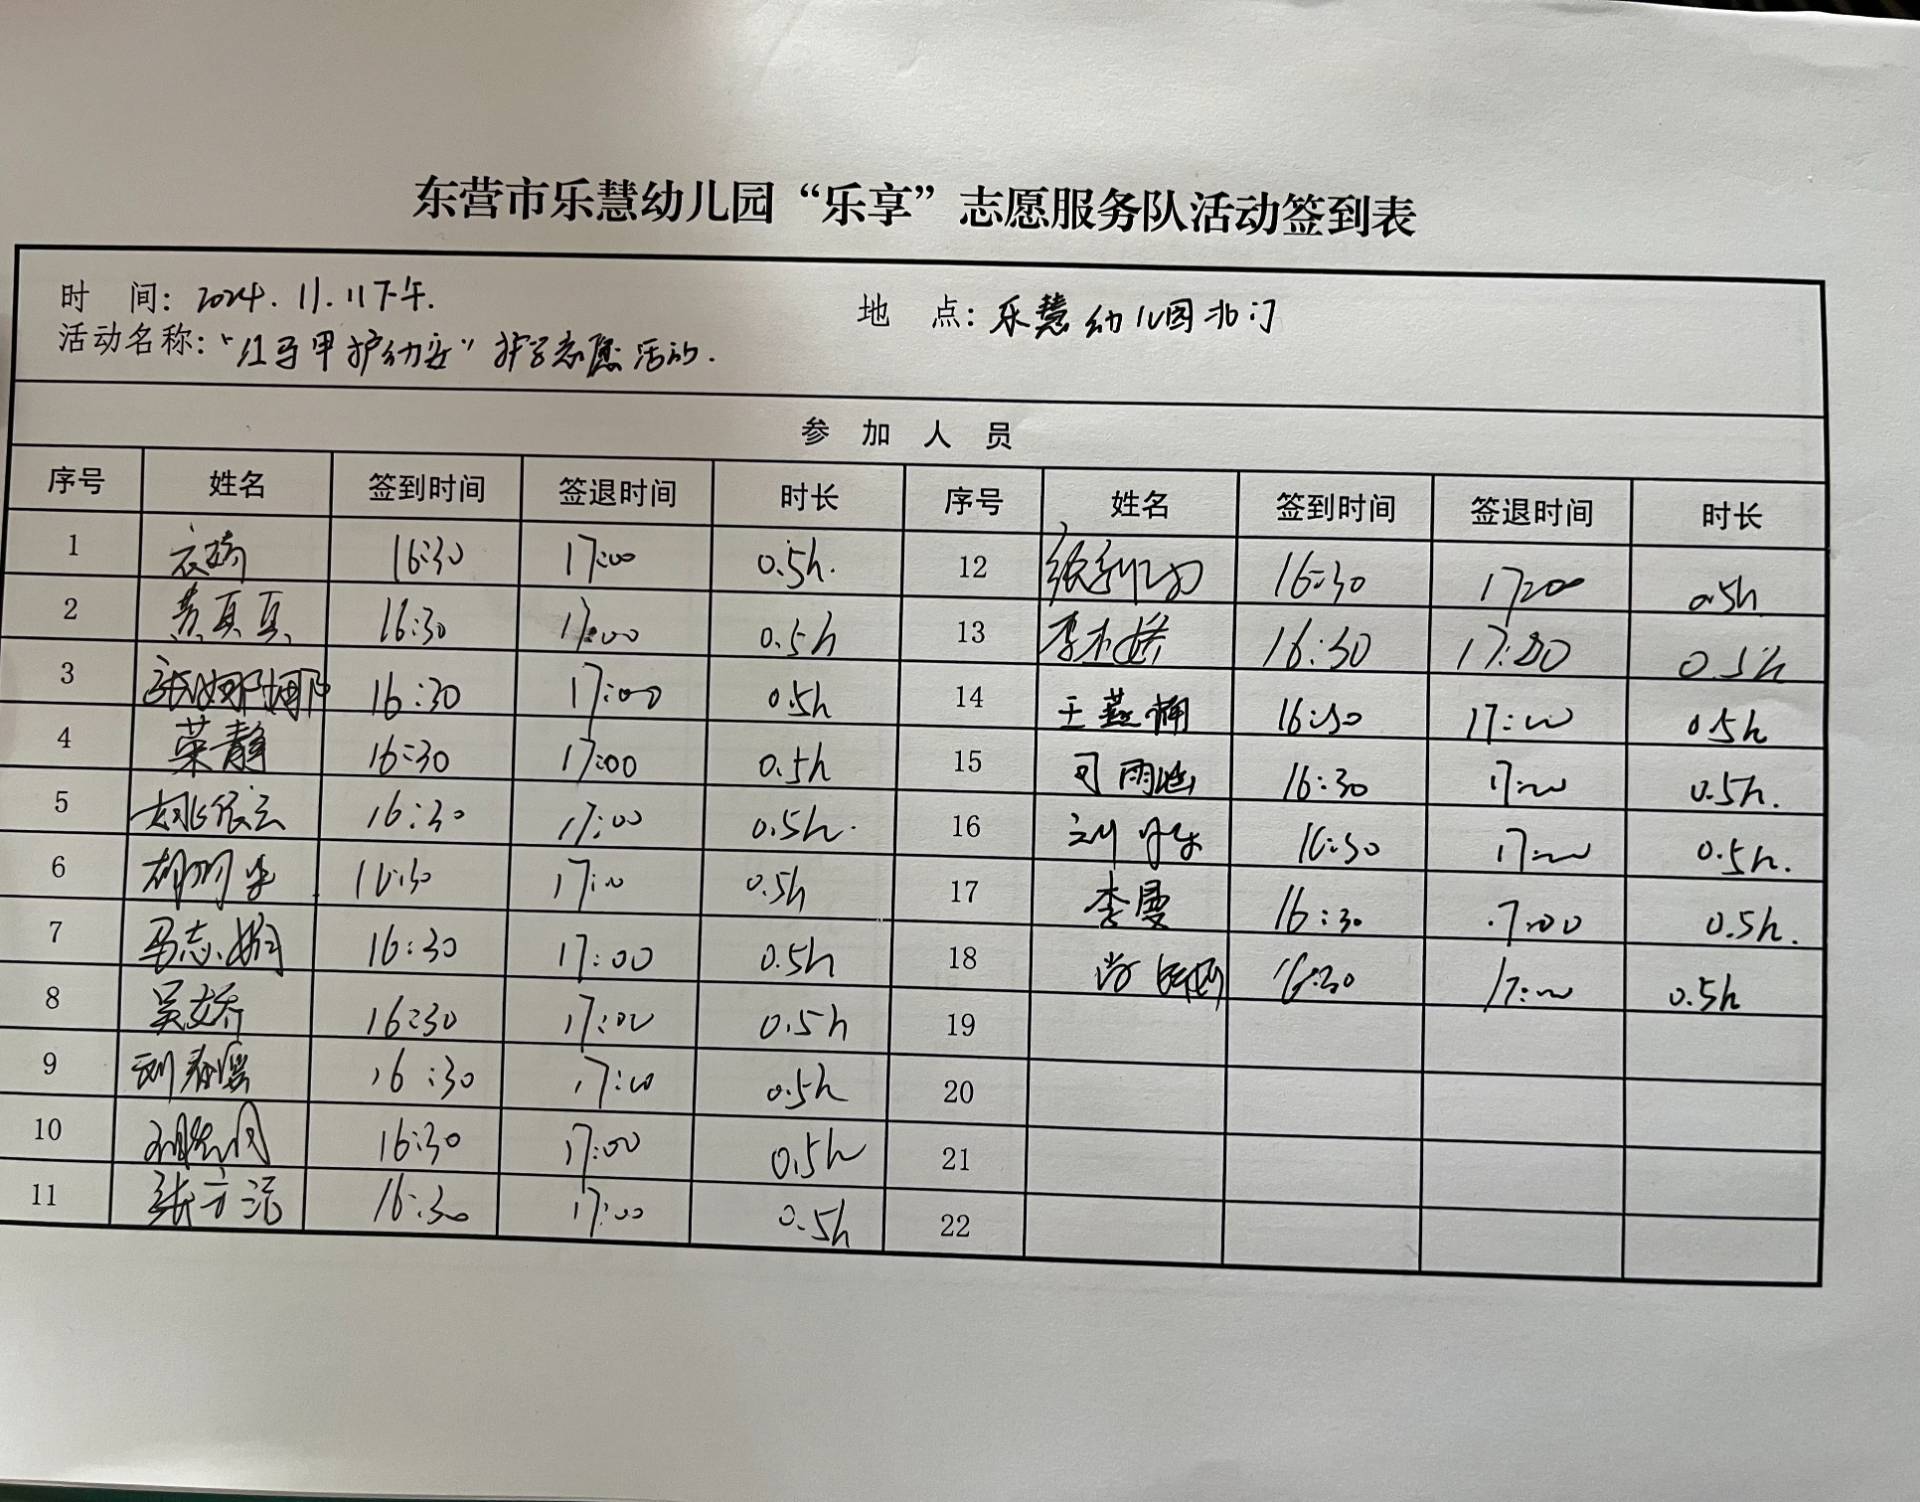 东营市乐慧幼儿园“乐享”志愿服务队活动签到表
时 间：2024.11.11下午. 地 点：乐慧幼儿园北门
活动名称：“红马甲护幼安”护学志愿活动.
参 加 人 员
序号 姓名 签到时间 签退时间 时长 序号 姓名 签到时间 签退时间 时长
1 衣琦 16:30 17:00 0.5h. 12 16:30 17:00 0.5h
2 黄真真 16:30 17:00 0.5h 13 16:30 17:00 0.5h
3 张娜娜 16:30 17:00 0.5h 14 王燕楠 16:30 17:00 0.5h
4 荣静 16:30 17:00 0.5h 15 司雨涵 16:30 17:00 0.5h.
5 姚依云 16:30 17:00 0.5h. 16 刘 16:30 17:00 0.5h.
6 16:30 17:00 0.5h 17 李曼 16:30 17:00 0.5h.
7 马志娟 16:30 17:00 0.5h 18 尚 16:30 17:00 0.5h
8 吴娇 16:30 17:00 0.5h 19
9 刘春霞 16:30 17:00 0.5h 20
10 16:30 17:00 0.5h 21
11 张方洁 16:30 17:00 0.5h 22